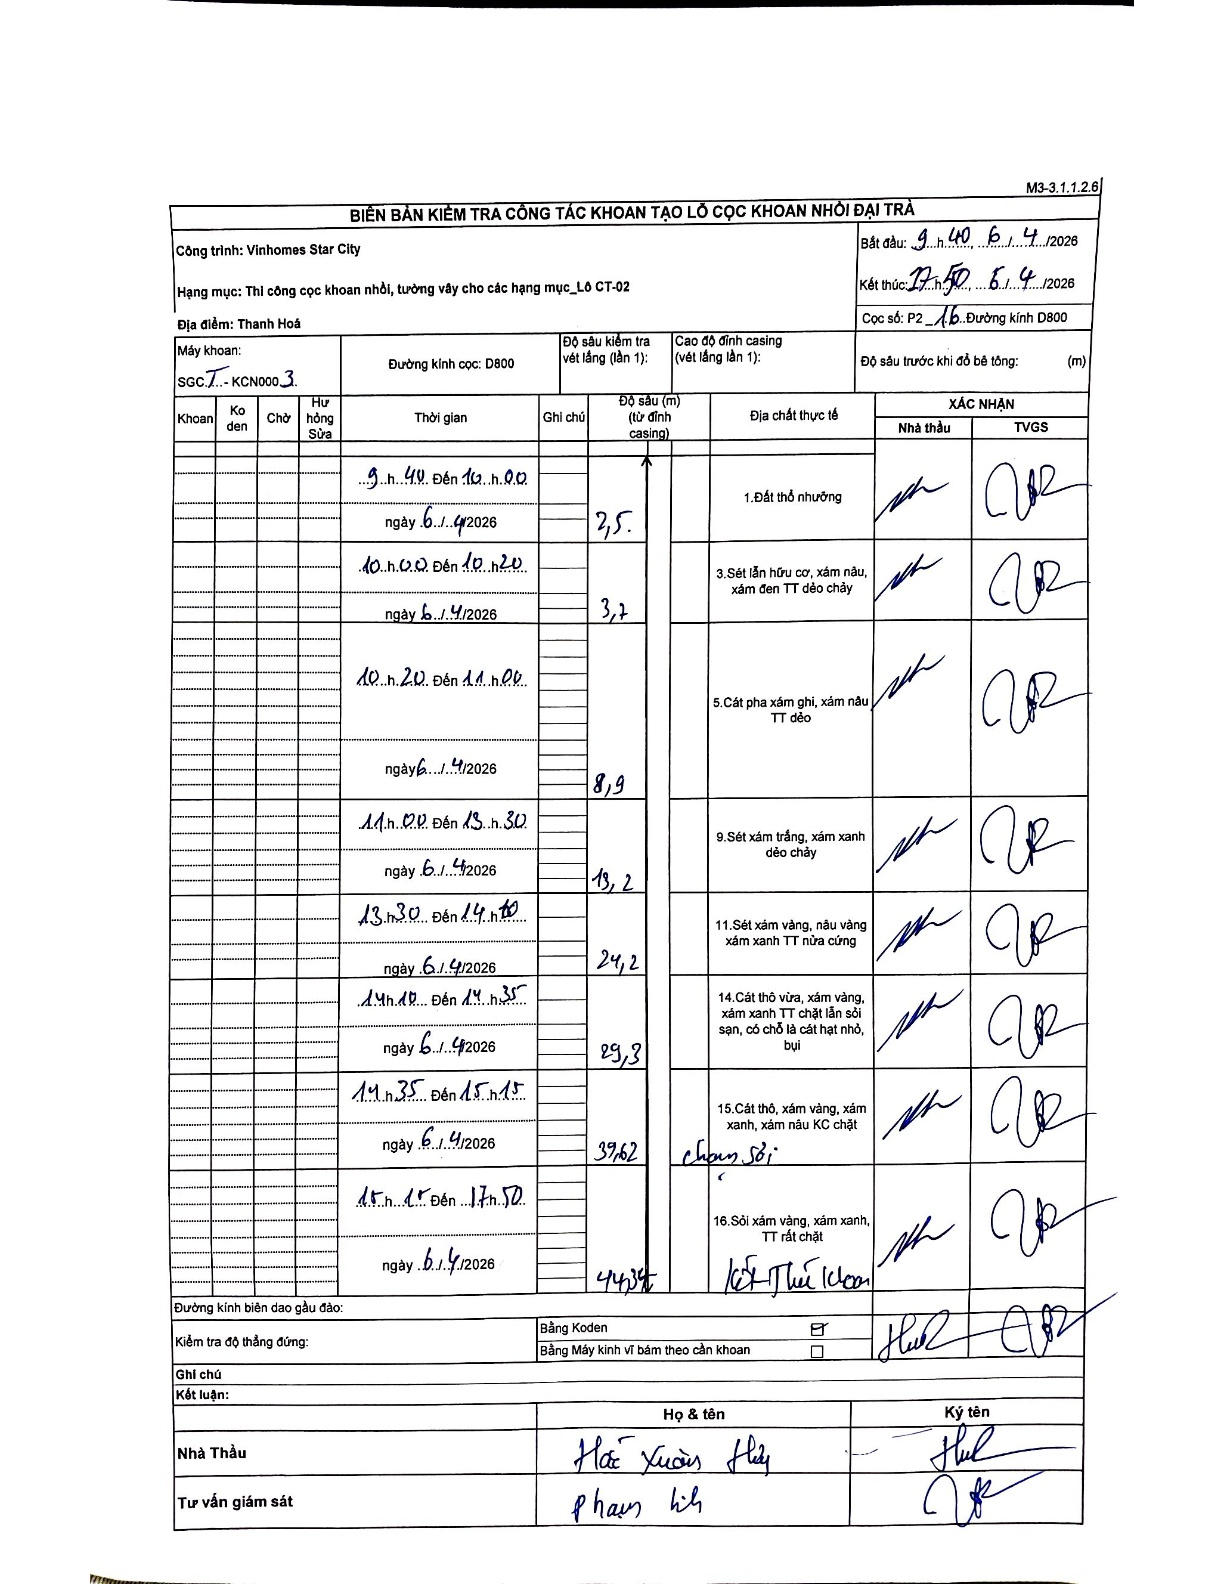 M3-3.1.1.2.6
BIÊN BẢN KIỂM TRA CÔNG TÁC KHOAN TẠO LỖ CỌC KHOAN NHỒI ĐẠI TRÀ
Công trình: Vinhomes Star City
Bắt đầu: 9 h 40, 6/4/2026
Hạng mục: Thi công cọc khoan nhồi, tường vây cho các hạng mục_Lô CT-02
Kết thúc: 17 h 50, 6/4/2026
Địa điểm: Thanh Hoá
Cọc số: P2_16 Đường kính D800
Máy khoan:
SGCT - KCN0003.
Đường kính cọc: D800
Độ sâu kiểm tra
vét lắng (lần 1):
Cao độ đỉnh casing
(vét lắng lần 1):
Độ sâu trước khi đổ bê tông: (m)
Khoan
Ko
den
Chờ
Hư
hỏng
Sửa
Thời gian
Ghi chú
Độ sâu (m)
(từ đỉnh
casing)
Địa chất thực tế
XÁC NHẬN
Nhà thầu
TVGS
9 h 40 Đến 10 h 00
ngày 6/4/2026
2,5
1.Đất thổ nhưỡng
10 h 00 Đến 10 h 20
ngày 6/4/2026
3,7
3.Sét lẫn hữu cơ, xám nâu,
xám đen TT dẻo chảy
10 h 20 Đến 11 h 00
ngày 6/4/2026
8,9
5.Cát pha xám ghi, xám nâu
TT dẻo
11 h 00 Đến 13 h 30
ngày 6/4/2026
13,2
9.Sét xám trắng, xám xanh
dẻo chảy
13 h 30 Đến 14 h 10
ngày 6/4/2026
24,2
11.Sét xám vàng, nâu vàng
xám xanh TT nửa cứng
14 h 10 Đến 14 h 35
ngày 6/4/2026
29,3
14.Cát thô vừa, xám vàng,
xám xanh TT chặt lẫn sỏi
sạn, có chỗ là cát hạt nhỏ,
bụi
14 h 35 Đến 15 h 15
ngày 6/4/2026
39,62
15.Cát thô, xám vàng, xám
xanh, xám nâu KC chặt
chạm sỏi
15 h 15 Đến 17 h 50
ngày 6/4/2026
16.Sỏi xám vàng, xám xanh,
TT rất chặt
Kết Thúc khoan
Đường kính biên dao gầu đào:
Kiểm tra độ thẳng đứng:
Bằng Koden
Bằng Máy kinh vĩ bám theo cần khoan
Ghi chú
Kết luận:
Họ & tên
Ký tên
Nhà Thầu
Xuân
Tư vấn giám sát
Phạm